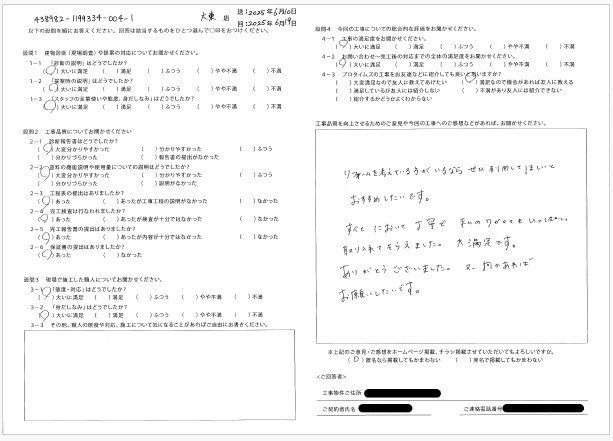 438982-1199334-004-1
大東 店
送:2025年6月10日
回:2025年6月19日
以下の設問を順にお答えください。回答は該当するものをひとつ選んで○印をおつけください。
設問1 建物診断(現場調査)や提案の対応についてお聞かせください。
1-1 「診断の説明」はどうでしたか?
( )大いに満足 ( )満足 ( )ふつう ( )やや不満 ( )不満
1-2 「提案時の説明」はどうでしたか?
( )大いに満足 ( )満足 ( )ふつう ( )やや不満 ( )不満
1-3 「スタッフの言葉使いや態度、身だしなみ」はどうでしたか?
( )大いに満足 ( )満足 ( )ふつう ( )やや不満 ( )不満
設問2 工事品質についてお聞かせください
2-1 診断報告書はどうでしたか?
( )大変分かりやすかった ( )分かりやすかった ( )ふつう
( )分かりづらかった ( )報告書の提出がなかった
2-2 塗料の機能説明や使用量についての説明はどうでしたか?
( )大変分かりやすかった ( )分かりやすかった ( )ふつう
( )分かりづらかった ( )説明がなかった
2-3 工程表の提出はありましたか?
( )あった ( )あったが工事工程の説明がなかった ( )なかった
2-4 完工検査は行なわれましたか?
( )あった ( )あったが検査が十分ではなかった ( )なかった
2-5 完工報告書の提出はありましたか?
( )あった ( )あったが内容が十分ではなかった ( )なかった
2-6 保証書の提出はありましたか?
( )あった ( )なかった
設問3 現場で施工した職人についてお聞かせください。
3-1 「態度・対応」はどうでしたか?
( )大いに満足 ( )満足 ( )ふつう ( )やや不満 ( )不満
3-2 「身だしなみ」はどうでしたか?
( )大いに満足 ( )満足 ( )ふつう ( )やや不満 ( )不満
3-3 その他、職人の態度や対応、施工について気になることがあればご自由にお書きください。
設問4 今回の工事についての総合的な評価をお聞かせください。
4-1 工事の満足度をお聞かせください。
( )大いに満足 ( )満足 ( )ふつう ( )やや不満 ( )不満
4-2 お問い合わせ~完工後の対応までの全体の満足度をお聞かせください。
( )大いに満足 ( )満足 ( )ふつう ( )やや不満 ( )不満
4-3 プロタイムズの工事をお友達などに紹介しても良いと思いますか?
( )大変満足なので友人に教えてあげたい ( )満足なので機会があれば友人に教える
( )満足しているが友人には紹介しない ( )不満があり友人には紹介できない
( )紹介するかどうかよくわからない
工事品質を向上させるためのご意見や今回の工事へのご感想などがあれば、お聞かせください。
リフォームを考えている方がいるなら ぜひ利用してほしいと
おすすめしたいです。
すべてにおいて丁寧で 私のワガママもいっぱい
取り入れてもらえました。大満足です。
ありがとうございました。又 何かあれば
お願いしたいです。
※上記のご意見・ご感想をホームページ掲載、チラシ掲載させていただいてもよろしいですか。
(○)匿名なら掲載してもかまわない ( )実名で掲載してもかまわない
<ご回答者>
工事物件ご住所
ご契約者氏名
ご連絡電話番号